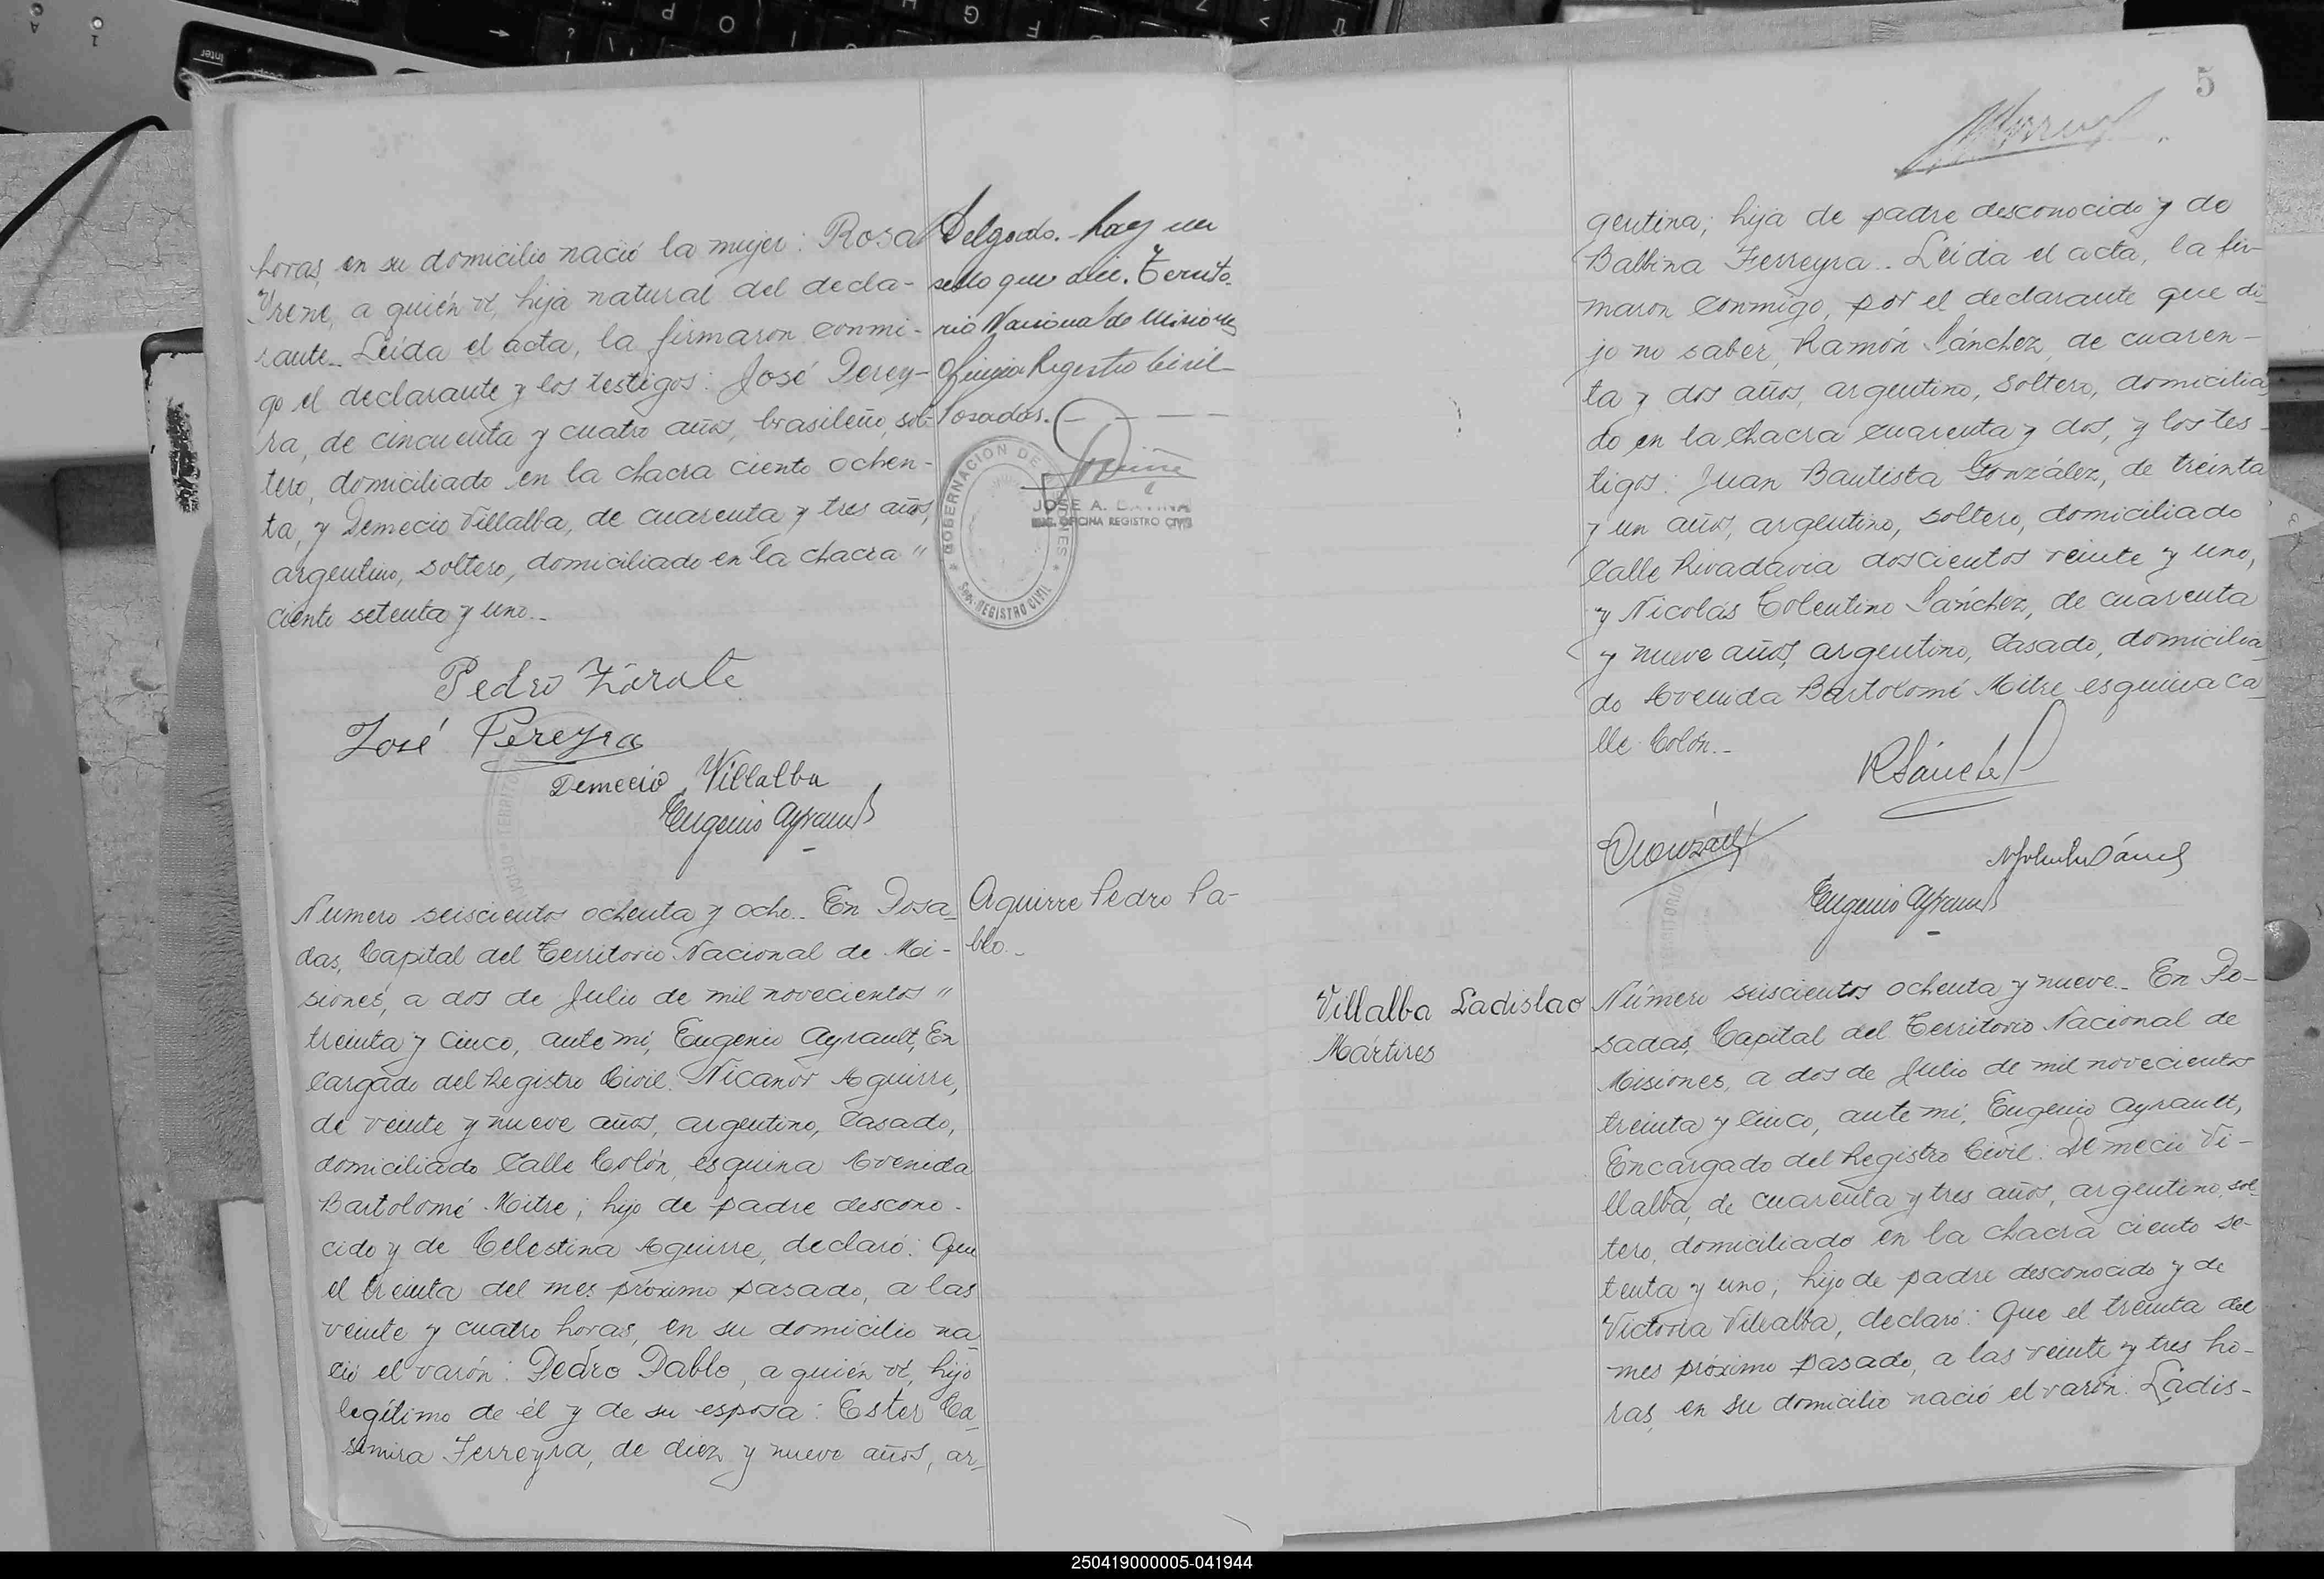 horas, en su domicilio nació la mujer: Rosa
Irene, a quién ví, hija natural del decla-
rante. Leída el acta, la firmaron conmi-
go el declarante y los testigos: José Perey-
ra, de cincuenta y cuatro años, brasileño, sol-
tero, domiciliado en la chacra ciento ochen-
ta, y Demecio Villalba, de cuarenta y tres años,
argentino, soltero, domiciliado en la chacra "
ciento setenta y uno..
Delgado.- hay un
sello que dice. Territo-
rio Nacional de Misiones
Oficina Registro Civil-
Posadas.
GOBERNACION DE MISIONES
Sec. REGISTRO CIVIL
JOSE A. DAVIÑA
ENC. OFICINA REGISTRO CIVIL
Pedro Zárate
José Pereyra
Demecio Villalba
Eugenio Ayrault
Número seiscientos ochenta y ocho.. En Posa-
das, Capital del Territorio Nacional de Mi-
siones, a dos de Julio de mil novecientos "
treinta y cinco, ante mí, Eugenio Ayrault, En
cargado del Registro Civil: Nicanor Aguirre,
de veinte y nueve años, argentino, casado,
domiciliado Calle Colón, esquina Avenida
Bartolomé Mitre; hijo de padre descono-
cido y de Celestina Aguirre, declaró: Que
el treinta del mes próximo pasado, a las
veinte y cuatro horas, en su domicilio na-
ció el varón: Pedro Pablo, a quién ví, hijo
legítimo de él y de su esposa: Ester Ca-
simira Ferreyra, de diez y nueve años, ar-
Aguirre Pedro Pa-
blo..
5
gentina; hija de padre desconocido y de
Balbina Ferreyra.. Leída el acta, la fir-
maron conmigo, por el declarante que di-
jo no saber, Ramón Sánchez, de cuaren-
ta y dos años, argentino, soltero, domicilia-
do en la chacra cuarenta y dos, y los tes-
tigos: Juan Bautista González, de treinta
y un años, argentino, soltero, domiciliado
Calle Rivadavia doscientos veinte y uno,
y Nicolás Tolentino Sánchez, de cuarenta
y nueve años, argentino, casado, domicilia-
do Avenida Bartolomé Mitre esquina ca-
lle Colón..
R Sánchez
González
Eugenio Ayrault
Villalba Ladislao
Mártires
Número seiscientos ochenta y nueve.. En Po-
sadas, Capital del Territorio Nacional de
Misiones, a dos de Julio de mil novecientos
treinta y cinco, ante mí, Eugenio Ayrault,
Encargado del Registro Civil: Demecio Vi-
llalba, de cuarenta y tres años, argentino, sol-
tero, domiciliado en la chacra ciento se-
tenta y uno; hijo de padre desconocido y de
Victoria Villalba, declaró: Que el treinta del
mes próximo pasado, a las veinte y tres ho-
ras, en su domicilio nació el varón: Ladis-
250419000005-041944